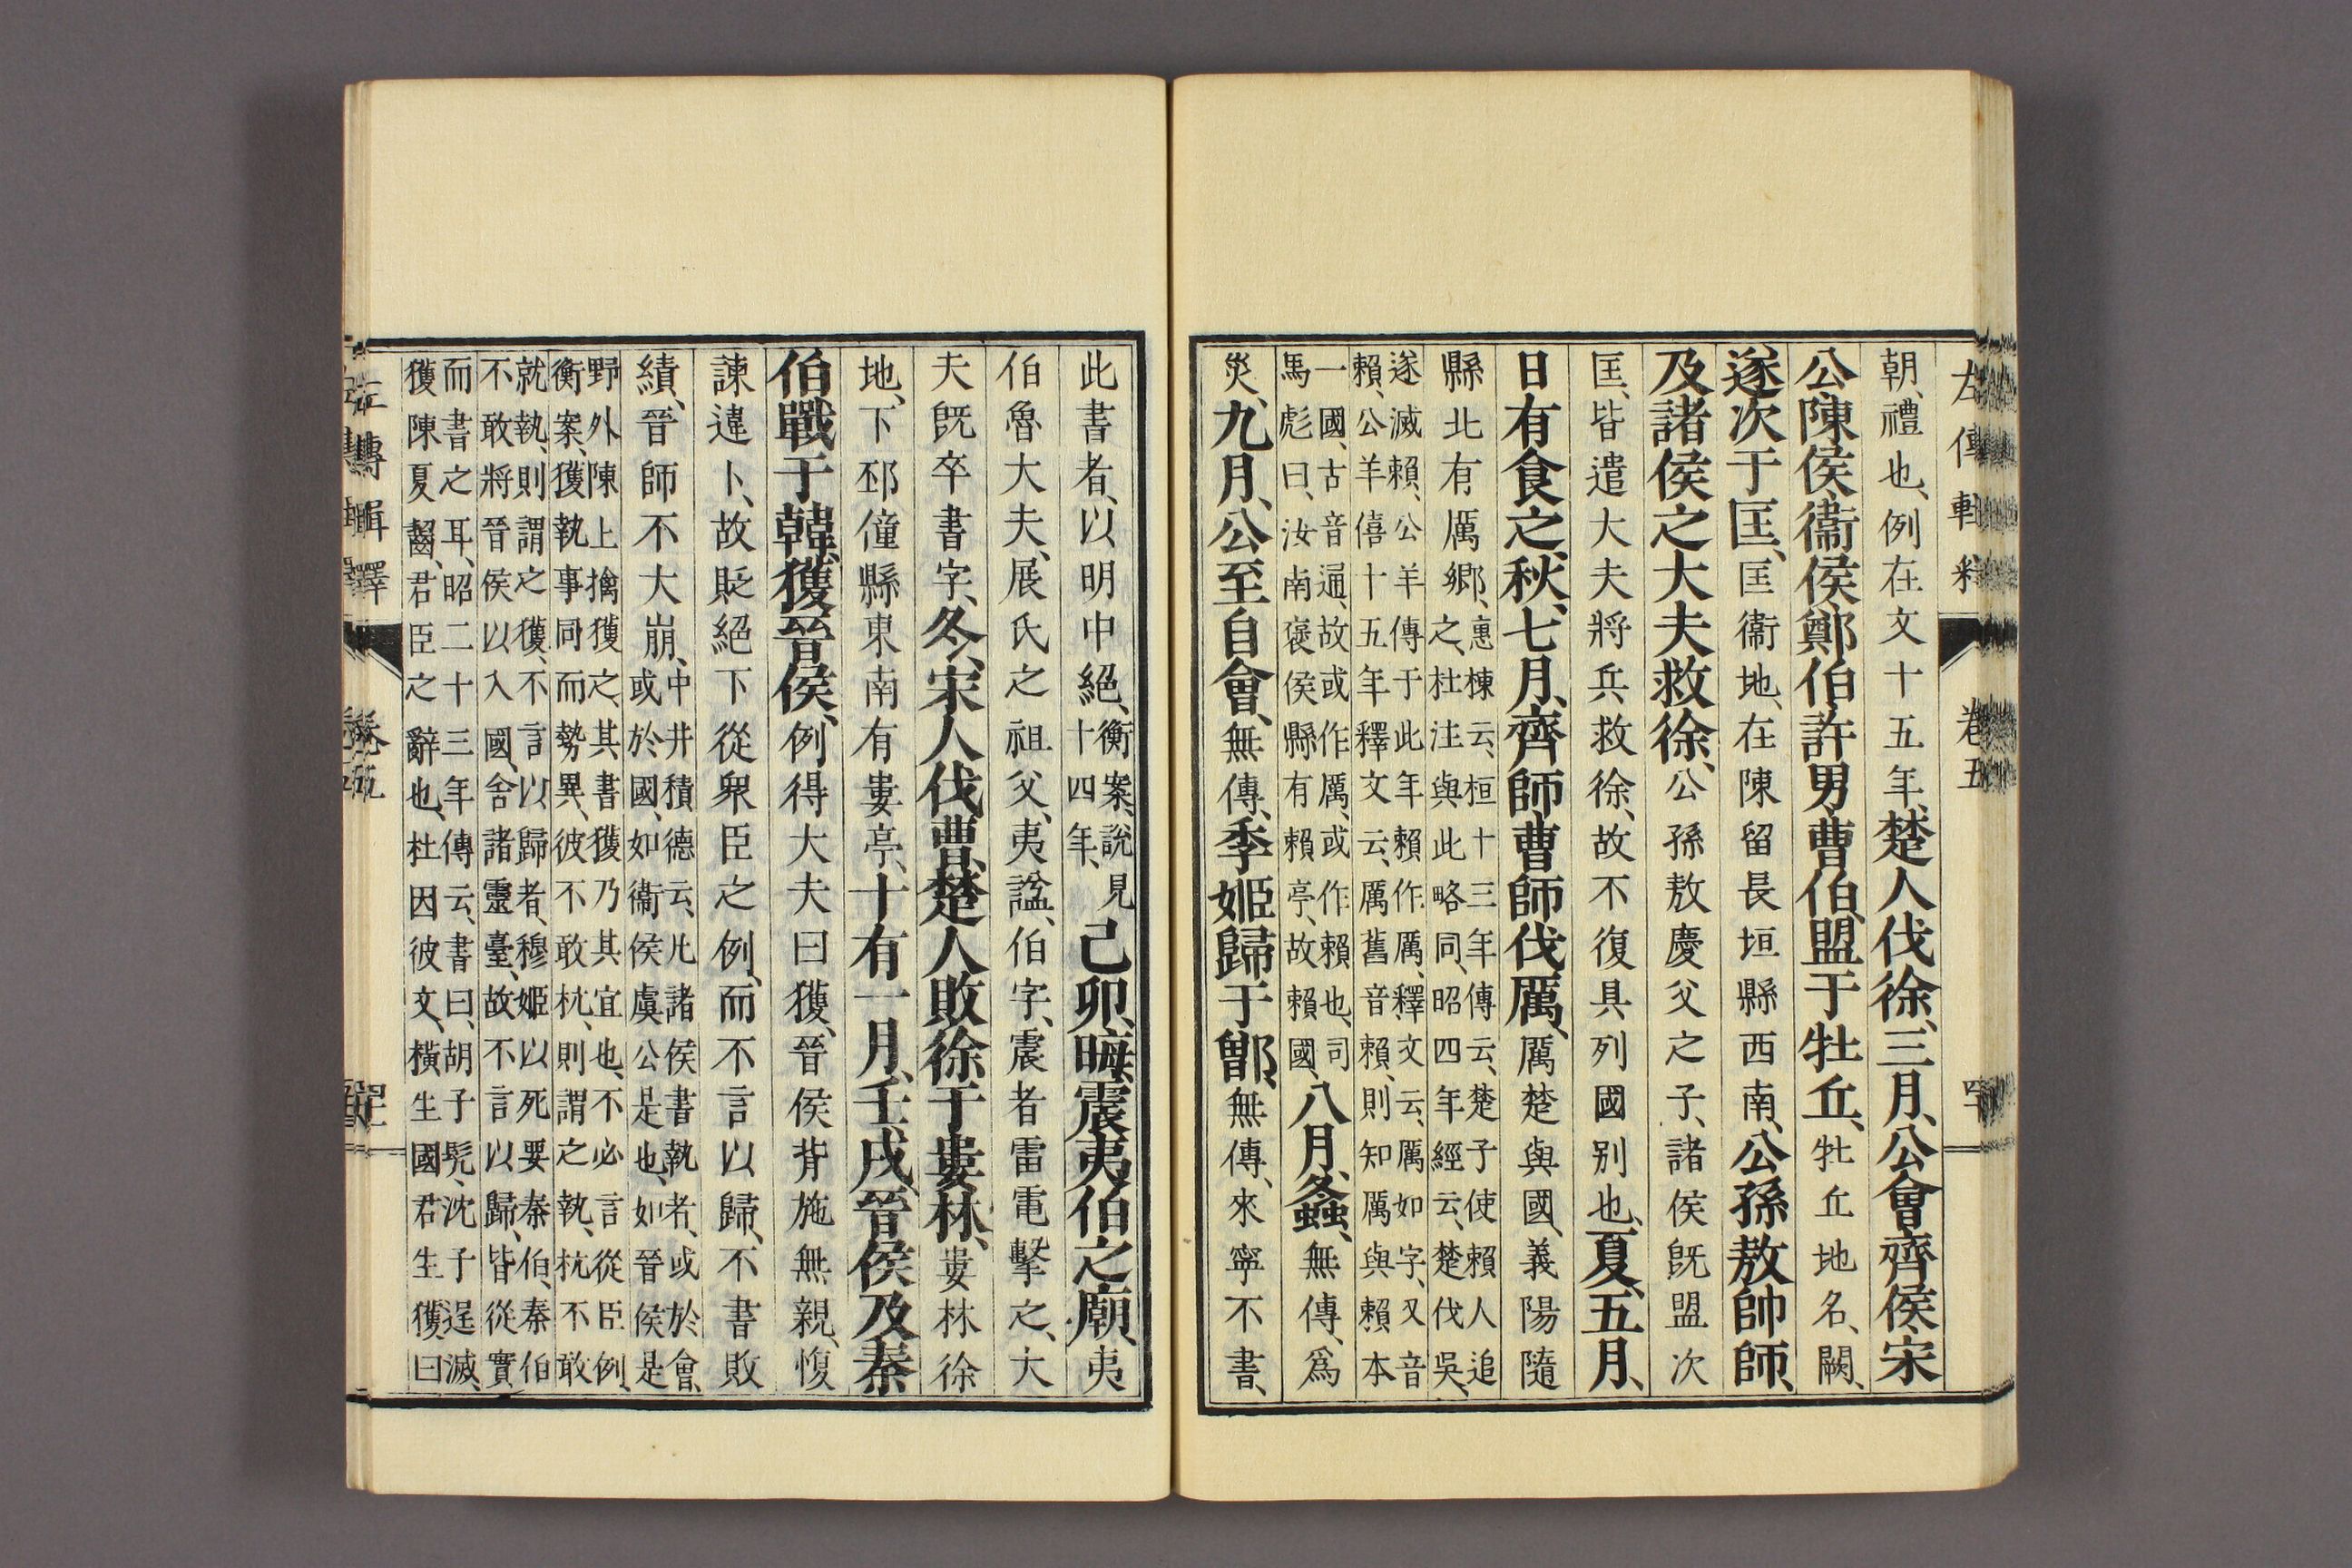 左傳輯釋 卷五
朝、禮也、例在文十五年、楚人伐徐、三月、公會齊侯、宋
公、陳侯、衞侯、鄭伯、許男、曹伯、盟于牡丘、牡丘地名、闕、
遂次于匡、匡衞地、在陳留長垣縣西南、公孫敖帥師、
及諸侯之大夫救徐、公孫敖慶父之子、諸侯旣盟次
匡、皆遣大夫將兵救徐、故不復具列國別也、夏、五月、
日有食之、秋、七月、齊師曹師伐厲、厲楚與國、義陽隨
縣北有厲鄉、
惠棟云、桓十三年傳云、楚子使賴人追
之、杜注與此略同、昭四年經云、楚伐吳、
遂滅賴、公羊傳于此年賴作厲、釋文云、厲如字、又音
賴、公羊僖十五年釋文云、厲舊音賴、則知厲與賴本
一國、古音通、故或作厲、或作賴也、司
馬彪曰、汝南褒侯縣有賴亭、故賴國、
八月、螽、無傳、爲
災、九月、公至自會、無傳、季姬歸于鄫、無傳、來寧不書、
此書者、以明中絕、
衡案、說見
十四年、
己卯、晦、震夷伯之廟、夷
伯魯大夫、展氏之祖父、夷謚、伯字、震者雷電擊之、大
夫旣卒書字、冬、宋人伐曹、楚人敗徐于婁林、婁林徐
地、下邳僮縣東南有婁亭、十有一月、壬戌、晉侯及秦
伯戰于韓、獲晉侯、例得大夫曰獲、晉侯背施無親、愎
諫違卜、故貶絕下從衆臣之例、而不言以歸、不書敗
績、晉師不大崩、
中井積德云、凡諸侯書執者、或於會、
或於國、如衞侯虞公是也、如晉侯是
野外陳上擒獲之、其書獲乃其宜也、不必言從臣例、
衡案、獲執事同而勢異、彼不敢杭、則謂之執、杭不敢
就執、則謂之獲、不言以歸者、穆姬以死要秦伯、秦伯
不敢將晉侯以入國、舍諸靈臺、故不言以歸、皆從實
而書之耳、昭二十三年傳云、書曰、胡子髠、沈子逞滅、
獲陳夏齧、君臣之辭也、杜因彼文、橫生國君生獲、曰
左傳輯釋